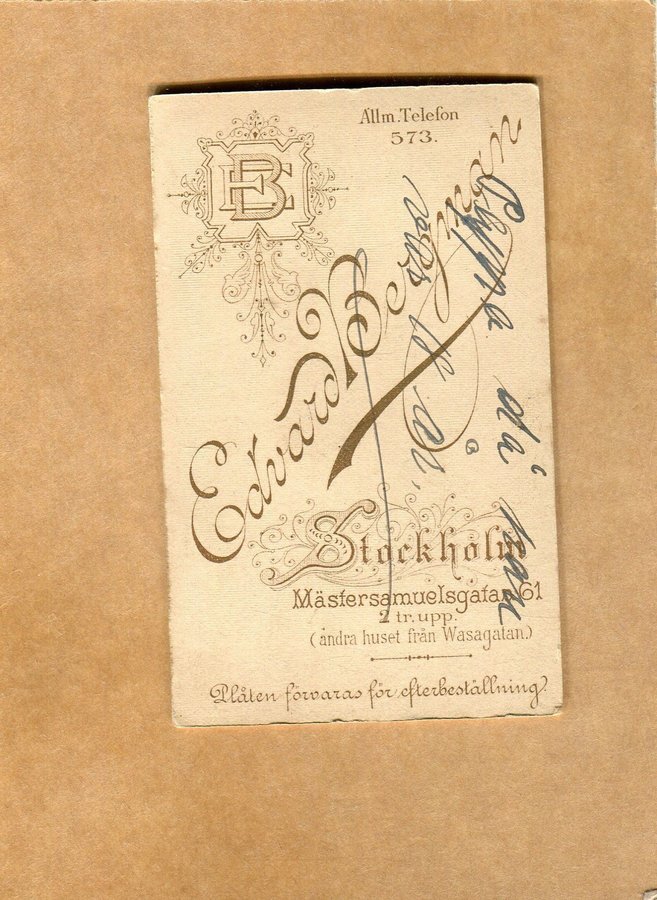 EB
Allm. Telefon
573.
Edvard
Stockholm
Mästersamuelsgatan 61
2 tr. upp.
(andra huset från Wasagatan.)
Plåten förvaras för efterbeställning.
då han
var 18 år.